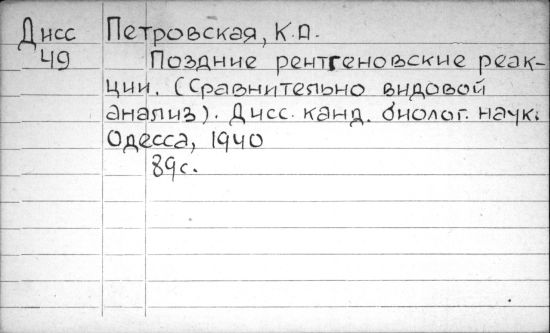 Дисс Петровская, К.А.
49 Поздние рентгеновские реак-
ции. (Сравнительно видовой
анализ). Дисс. канд. биолог. наук.
Одесса, 1940
89с.